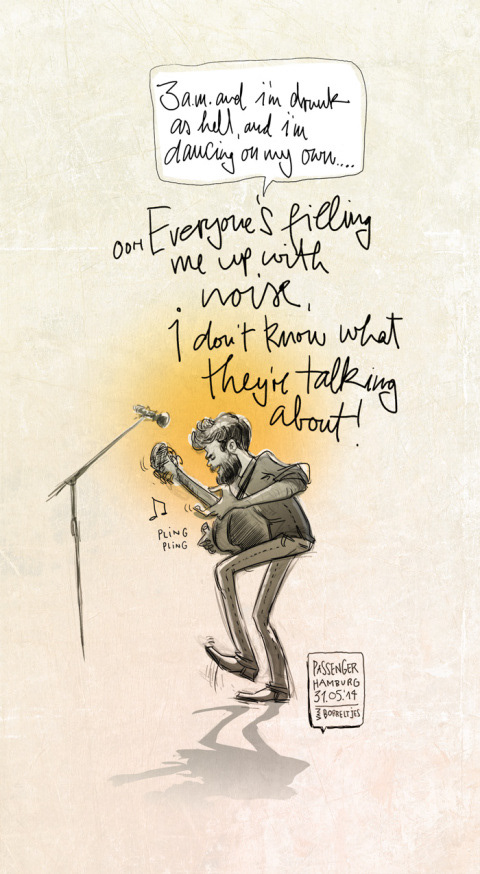 3 a.m. and i'm drunk
as hell, and i'm
dancing on my own....
OOH Everyone's filling
me up with
noise,
i don't know what
they're talking
about!
PLING
PLING
PASSENGER
HAMBURG
31.05.'14
BOPPELTJES